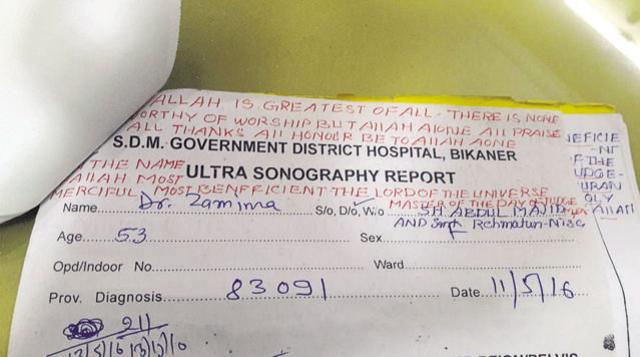 ALLAH IS GREATEST OF ALL. THERE IS NONE
WORTHY OF WORSHIP BUT ALLAH ALONE All PRAISE
ALL THANKS All HONOUR BE TO Allah AONE
S.D.M. GOVERNMENT DISTRICT HOSPITAL, BIKANER
THE NAME
ALLAH MOST
ULTRA SONOGRAPHY REPORT
MERCIFUL MOST BENFFICIENT THE LORD OF THE UNIVERSE
MASTER OF THE DAY OF JUDGE
NEFICIE
-NT
F THE
UDGE-
URAN
OLY
ALLAH
Name Dr. Zamima S/o, D/o, W/o SH ABDUL MAJID
AND Smt. Rehmatun-Nisa
Age 53 Sex F
Opd/Indoor No. Ward
Prov. Diagnosis 83091 Date 11/5/16
211